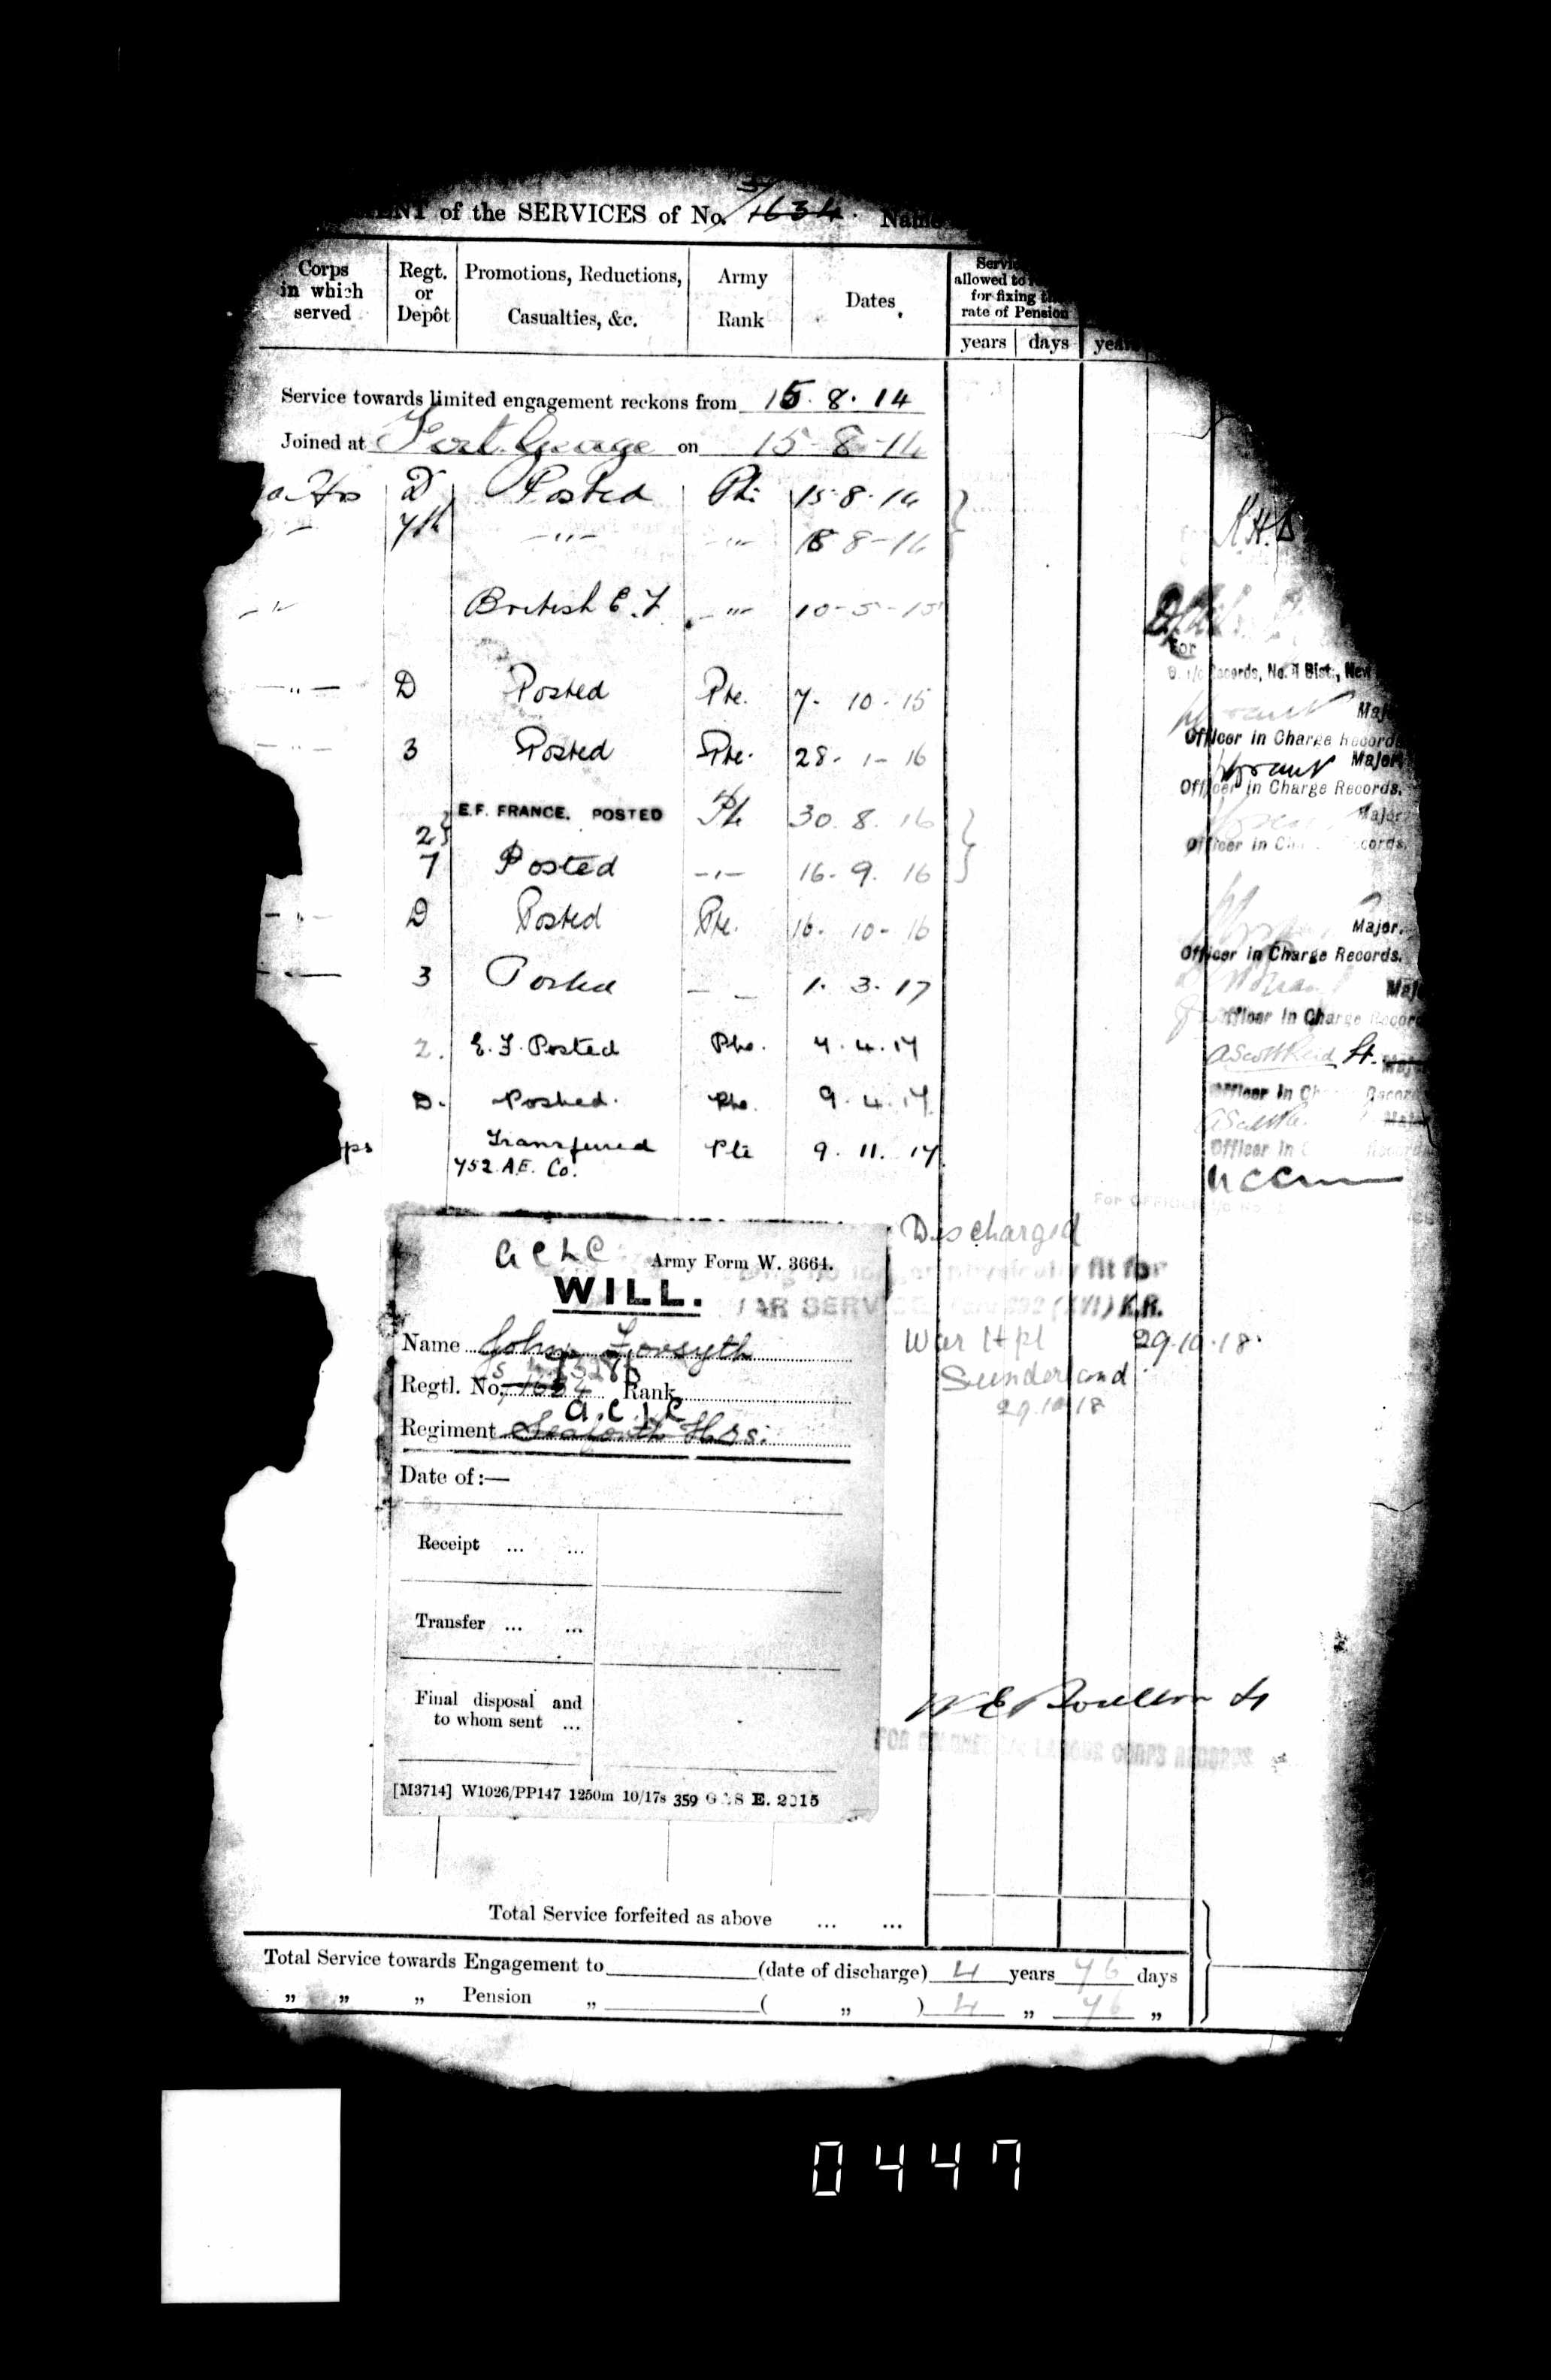 ENT of the SERVICES of No. S/1634. Name
Corps in which served
Regt. or Depôt
Promotions, Reductions, Casualties, &c.
Army Rank
Dates
allowed to
for fixing
rate of Pension
years days years
Service towards limited engagement reckons from 15.8.14
Joined at Fort George on 15-8-14
D Posted Pte 15-8-14
7th -"- -"- 18-8-14
-"- British E.F. -"- 10-5-15
-"- D Posted Pte. 7-10-15
-"- 3 Posted Pte. 28-1-16
2 E.F. FRANCE. POSTED Pte 30.8.16
7 Posted -"- 16.9.16
-"- D Posted Pte. 16-10-16
-"- 3 Posted 1.3.17
2. E.F. Posted Pte. 4.4.17
D. Posted. Pte. 9.4.17.
ps Transferred Pte 9.11.17.
752. A.E. Co.
Records, No. 1 Dist.,
Major
Officer in Charge Records.
Major
Officer in Charge Records.
Major
Officer in Charge Records.
Major.
Officer in Charge Records.
Officer in Charge Records
Lt.
Officer in Charge Records
Officer in Records
Discharged
no longer physically fit for
WAR SERVICE 392 (XVI) K.R.
War Hpl 29.10.18.
Sunderland
29.10.18
W E Boulton Lt
LABOUR CORPS RECORDS
Army Form W. 3664.
WILL.
Name John Forsyth
Regtl. No. S 1634 Rank
Regiment Seaforth Hrs.
Date of:—
Receipt ... ...
Transfer ... ...
Final disposal and
to whom sent ...
[M3714] W1026/PP147 1250m 10/17s 359 G & S E. 2015
Total Service forfeited as above ... ...
Total Service towards Engagement to (date of discharge) 4 years 76 days
" " " Pension " ( " ) 4 " 76 "
0447